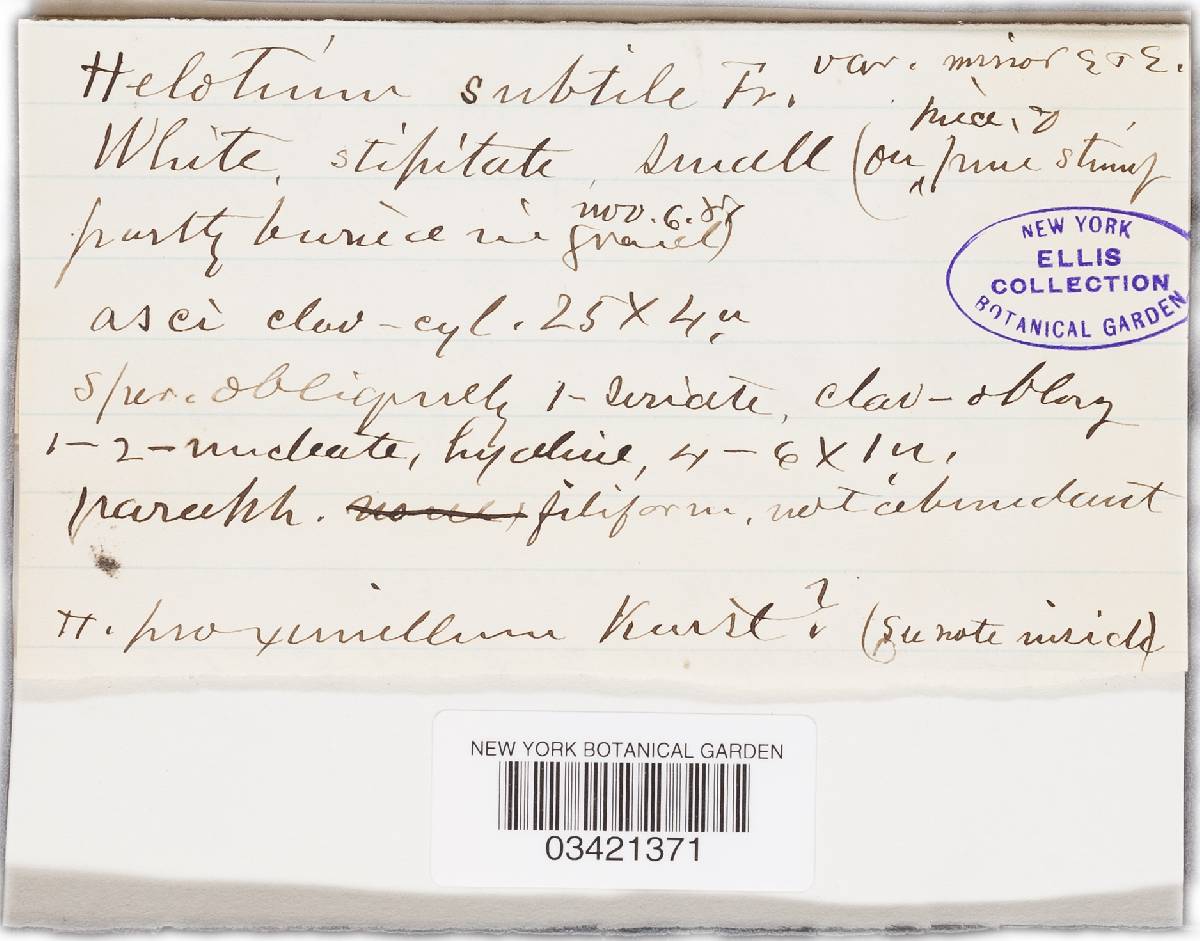 Helotium subtile Fr. var. minor E & E.
White, stipitate, small (on pine stump
partly buried in gravel)
Nov. 6. 87
asci clav-cyl. 25 X 4 u
spor. obliquely 1-seriate, clav-oblong
1-2-nucleate, hyaline, 4-6 X 1 u.
paraph. none, filiform, not abundant
H. proximellum Karst? (See note inside)
NEW YORK
ELLIS
COLLECTION
BOTANICAL GARDEN
NEW YORK BOTANICAL GARDEN
03421371